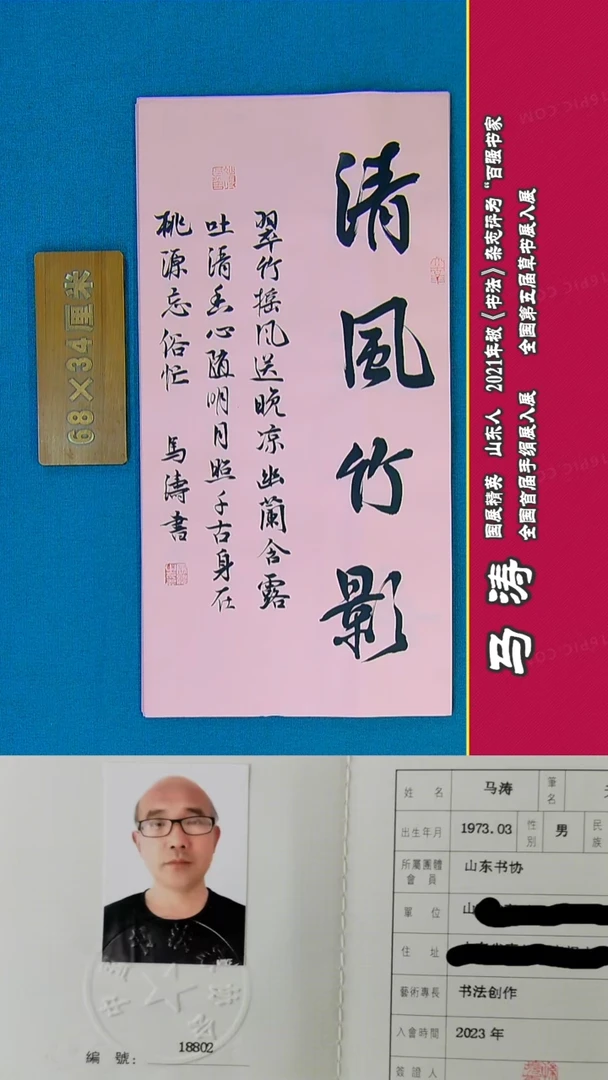 清風竹影
翠竹摇风送晚凉幽蘭含露
吐清香心随明月照千古身在
桃源忘俗忙 馬濤書
68×34厘米
马涛
国展精英 山东人 2021年被《书法》杂志评为“百强书家
全国首届手绢展入展 全国第五届草书展入展
姓名 马涛 筆名
出生年月 1973.03 性別 男 民族
所屬團體會員 山东书协
單位 山
住址
藝術專長 书法创作
入會時間 2023 年
簽證人
編號: 18802